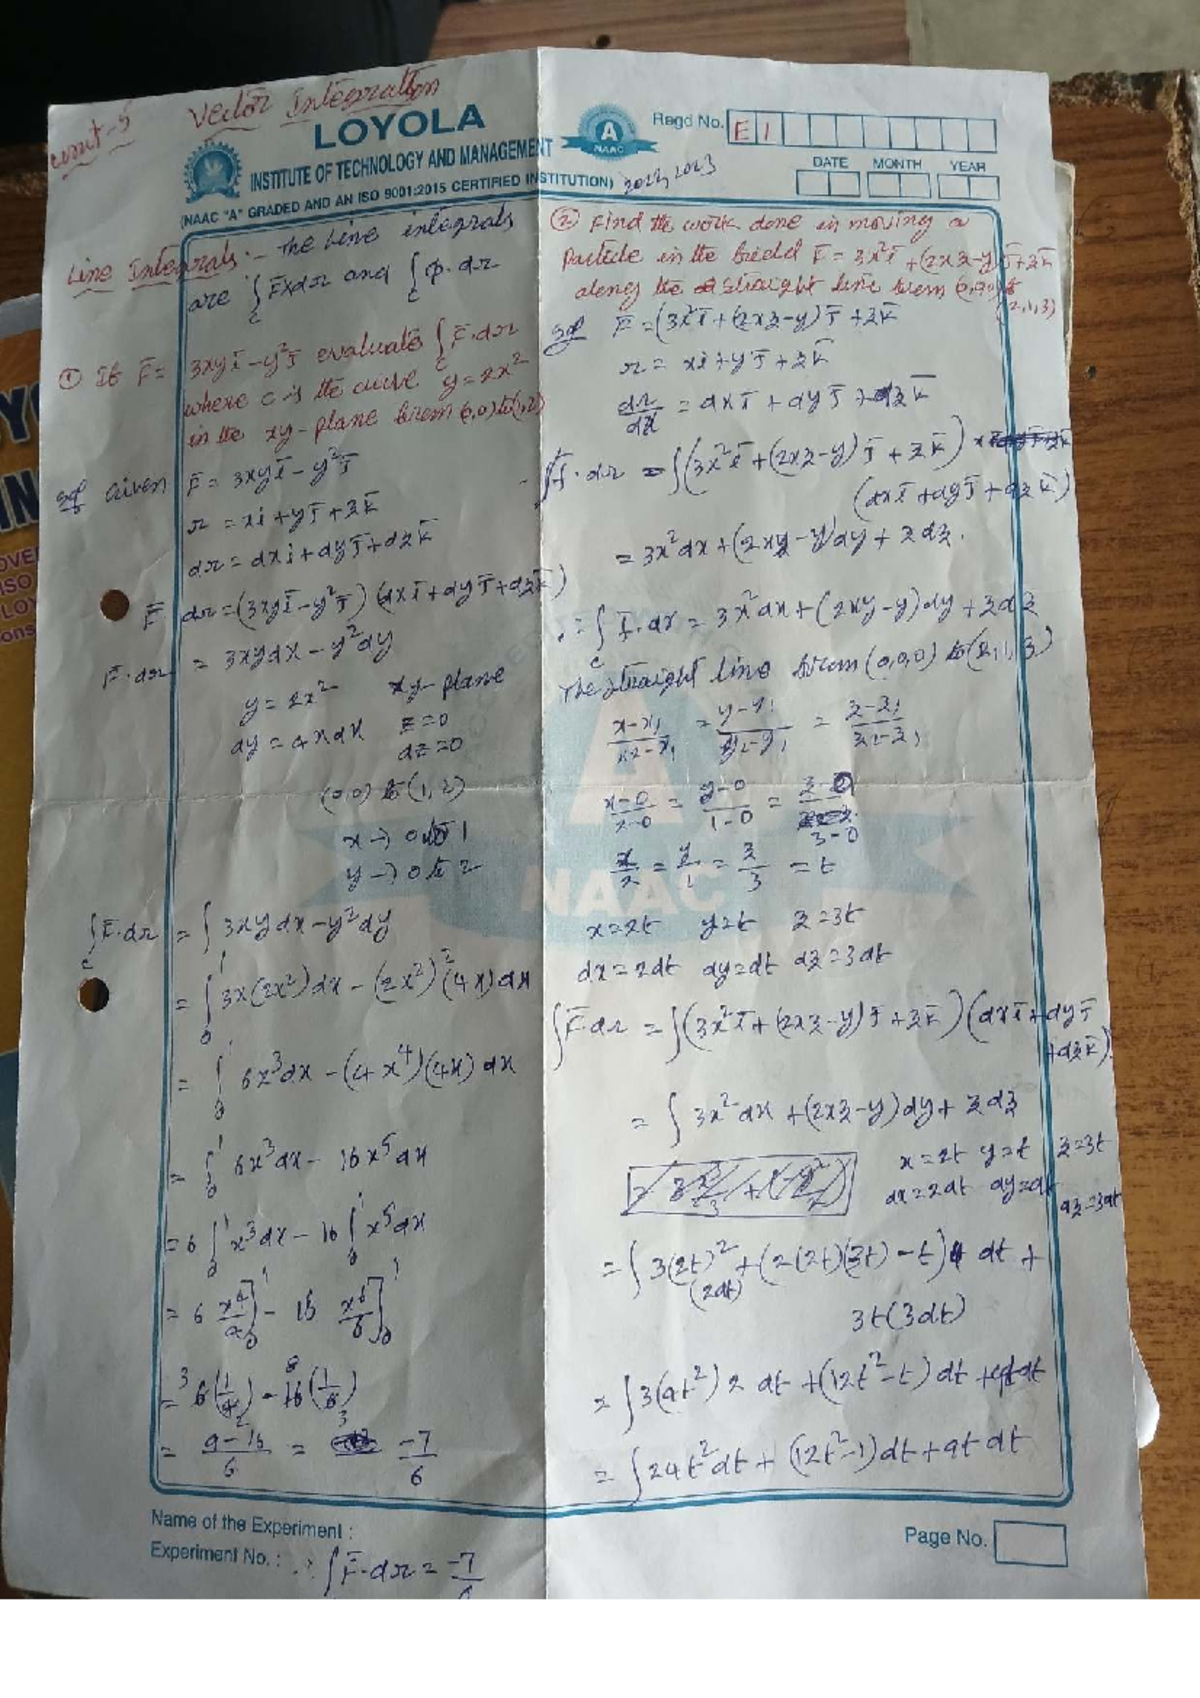 unit-5 Vector Integration
LOYOLA
INSTITUTE OF TECHNOLOGY AND MANAGEMENT
(NAAC "A" GRADED AND AN ISO 9001:2015 CERTIFIED INSTITUTION)
A
NAAC
Regd No. E 1
DATE MONTH YEAR
2022, 2023
Line Integrals :- The Line integrals
are ∫c F̄×dr and ∫c φ·dr
① If F̄ = 3xyī - y²j̄ evaluate ∫c F̄·dr
where c is the curve y = 2x²
in the xy-plane from (0,0) to (1,2)
Sol Given F̄ = 3xyī - y²j̄
r = xi + yj̄ + zk̄
dr = dxi + dyj̄ + dzk̄
F̄ dr = (3xyī - y²j̄) (dxī + dyj̄ + dzk̄)
F̄·dr = 3xydx - y²dy
y = 2x² xy-plane
dy = 4xdx z=0
dz=0
(0,0) to (1,2)
x → 0 to 1
y → 0 to 2
∫c F̄·dr = ∫ 3xydx - y²dy
= ∫₀¹ 3x(2x²)dx - (2x²)²(4x)dx
= ∫₀¹ 6x³dx - (4x⁴)(4x)dx
= ∫₀¹ 6x³dx - 16x⁵dx
= 6∫₀¹ x³dx - 16∫₀¹ x⁵dx
= 6 x⁴/4]₀¹ - 16 x⁶/6]₀¹
= 6(1/4) - 16(1/6)
= 9-16/6 = -7/6
Name of the Experiment :
Experiment No. : ∴ ∫F̄·dr = -7/6
② Find the work done in moving a
Particle in the field F̄ = 3x²ī + (2xz-y)j̄ + zk̄
along the straight line from (0,0,0) to
(2,1,3)
Sol F̄ = (3x²ī + (2xz-y)j̄ + zk̄
r = xi + yj̄ + zk̄
dr/dx = dxī + dyj̄ + dzk̄
∫f̄·dr = ∫(3x²ī + (2xz-y)j̄ + zk̄) ×
(dxī + dyj̄ + dzk̄)
= 3x²dx + (2xy-y)dy + zdz.
∴ = ∫c F̄·dr = 3x²dx + (2xy-y)dy + zdz
The straight line from (0,0,0) to (2,1,3)
x-x₁/x₂-x₁ = y-y₁/y₂-y₁ = z-z₁/z₂-z₁
x-0/2-0 = y-0/1-0 = z-0/3-0
x/2 = y/1 = z/3 = t
x=2t y=t z=3t
dx=2dt dy=dt dz=3dt
∫F̄·dr = ∫(3x²ī + (2xz-y)j̄ + zk̄)(dxī + dyj̄
+dzk̄)
= ∫ 3x²dx + (2xz-y)dy + zdz
x=2t y=t z=3t
dx=2dt dy=dt dz=3dt
= ∫ 3(2t)² (2dt) + (2(2t)(3t) - t) dt +
3t(3dt)
= ∫ 3(4t²)2 dt + (12t²-t) dt + 9t dt
= ∫ 24t²dt + (12t²-1)dt + 9t dt
NAAC
Page No.